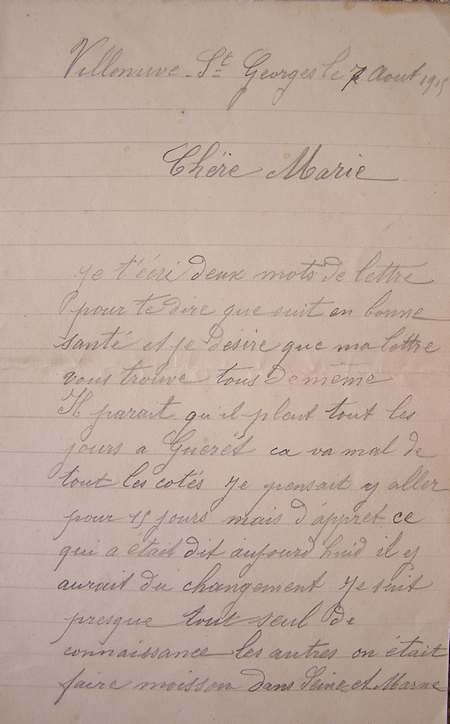 Villeneuve - St Georges le 7 Aout 1915
Chère Marie
Je t'écri deux mots de lettre
pour te dire que suit en bonne
santé et je desire que ma lettre
vous trouve tous de même
Il parait qu'il pleut tout les
jours a Guerêt ca va mal de
tout les cotés Je pensait y aller
pour 15 jours mais d'appret ce
qui a était dit aujourd huid il y
aurait du changement Je suit
presque tout seul de
connaissance les autres on était
faire moisson dans Seine et Marne